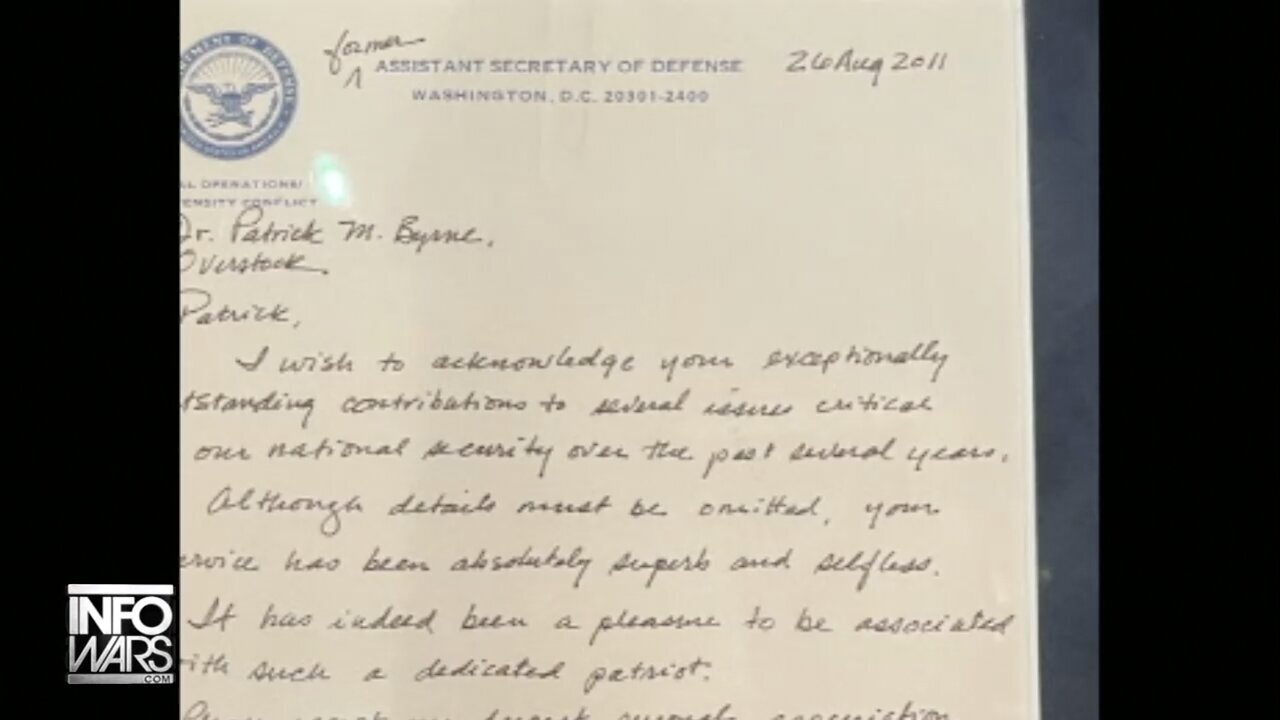 former
ASSISTANT SECRETARY OF DEFENSE
26 Aug 2011
WASHINGTON, D.C. 20301-2400
L OPERATIONS/
ENSITY CONFLICT
Dr. Patrick M. Byrne,
Overstock.
Patrick,
I wish to acknowledge your exceptionally
tstanding contributions to several issues critical
our national security over the past several years.
Although details must be omitted, your
ervice has been absolutely superb and selfless.
It has indeed been a pleasure to be associated
ith such a dedicated patriot.
INFO
WARS
.COM